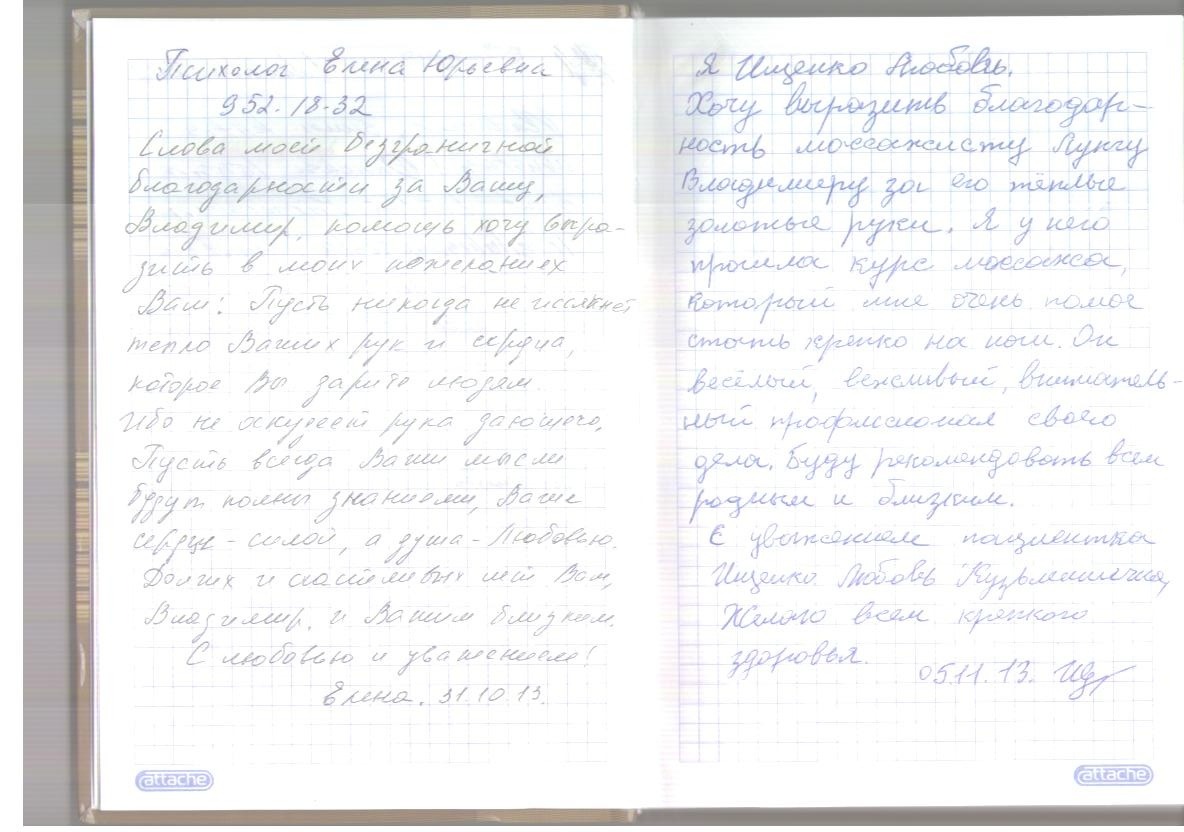 Психолог Елена Юрьевна
952-18-32
Слова моей безграничной
благодарности за Вашу,
Владимир, помощь хочу выра-
зить в моих пожеланиях
Вам: Пусть никогда не иссякнет
тепло Ваших рук и сердца,
которое Вы дарите людям.
Ибо не оскудеет рука дающего.
Пусть всегда Ваши мысли
будут полны знаниями, Ваше
сердце - силой, а душа - Любовью.
Долгих и счастливых лет Вам,
Владимир, и Вашим близким.
С любовью и уважением!
Елена. 31.10.13.
attache
Я Ищенко Любовь.
Хочу выразить благодар-
ность массажисту Лунгу
Владимиру за его тёплые
золотые руки. Я у него
прошла курс массажа,
который мне очень помог
стать крепко на ноги. Он
весёлый, вежливый, вниматель-
ный профессионал своего
дела. Буду рекомендовать всем
родным и близким.
С уважением пациентка
Ищенко Любовь Кузьминична,
Желаю всем крепкого
здоровья.
05.11.13.
attache